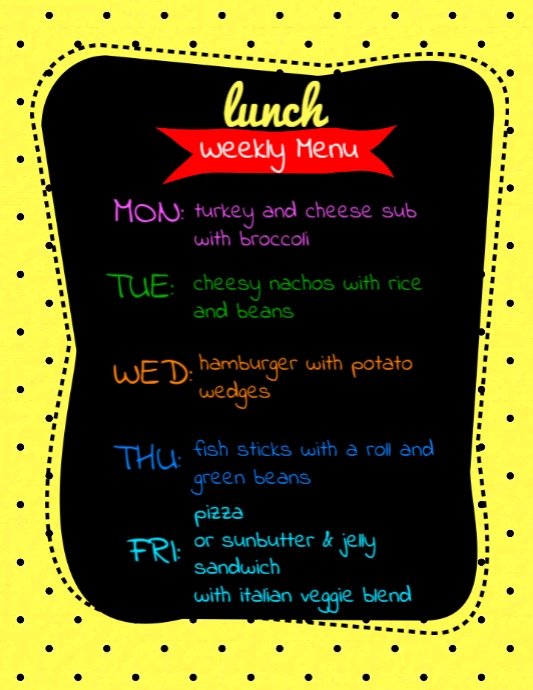 lunch
Weekly Menu
MON: turkey and cheese sub
with broccoli
TUE: cheesy nachos with rice
and beans
WED: hamburger with potato
wedges
THU: fish sticks with a roll and
green beans
pizza
FRI: or sunbutter & jelly
sandwich
with italian veggie blend